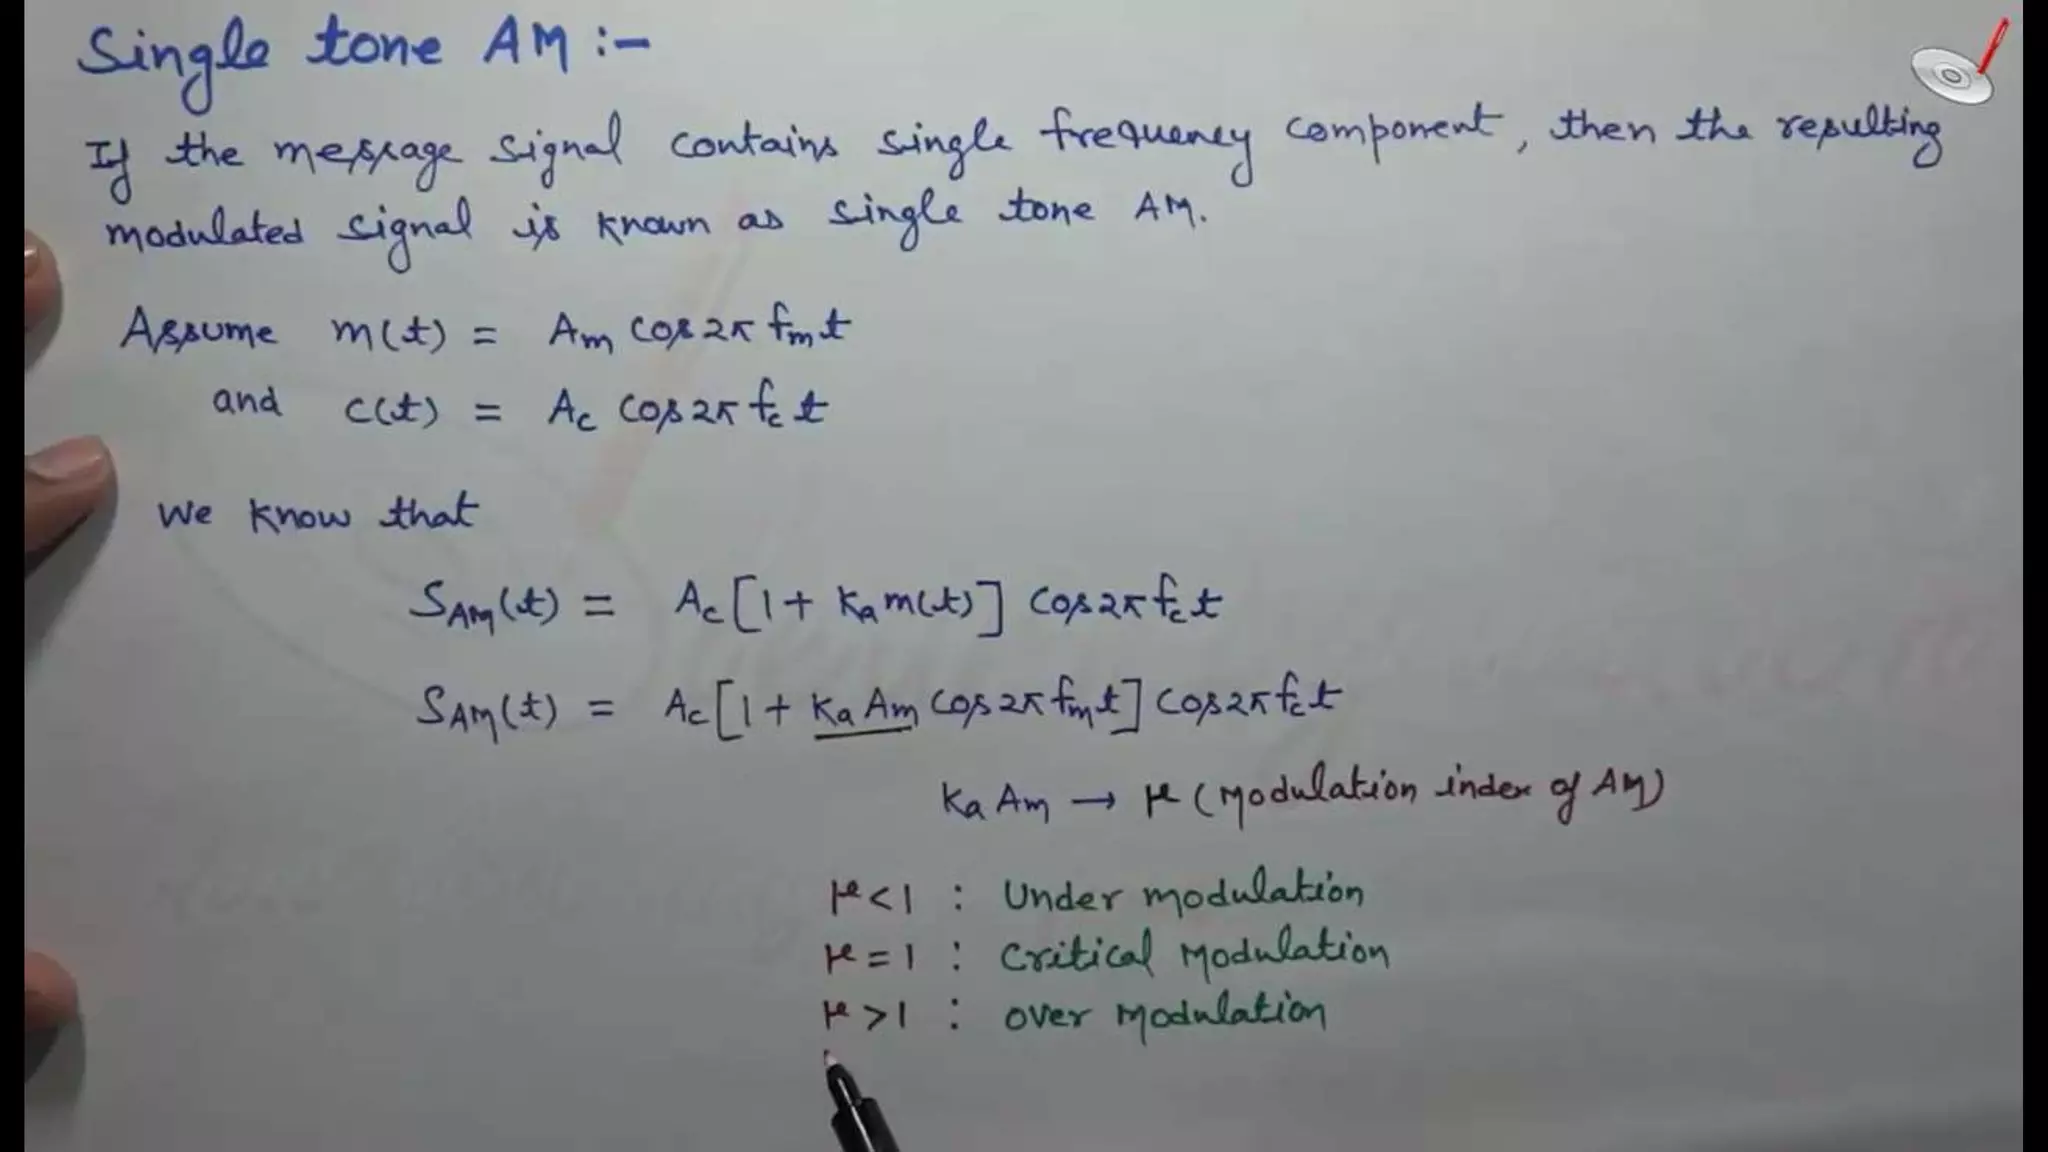 Single tone AM :-
If the message signal contains single frequency component, then the resulting
modulated signal is known as single tone AM.
Assume m(t) = Am cos2π fmt
and c(t) = Ac cos2π fc t
We know that
SAM(t) = Ac[1+ kam(t)] cos2π fct
SAM(t) = Ac[1+ Ka Am cos2π fmt] cos2π fct
Ka Am → μ (Modulation index of AM)
μ<1 : Under modulation
μ=1 : Critical Modulation
μ>1 : over Modulation